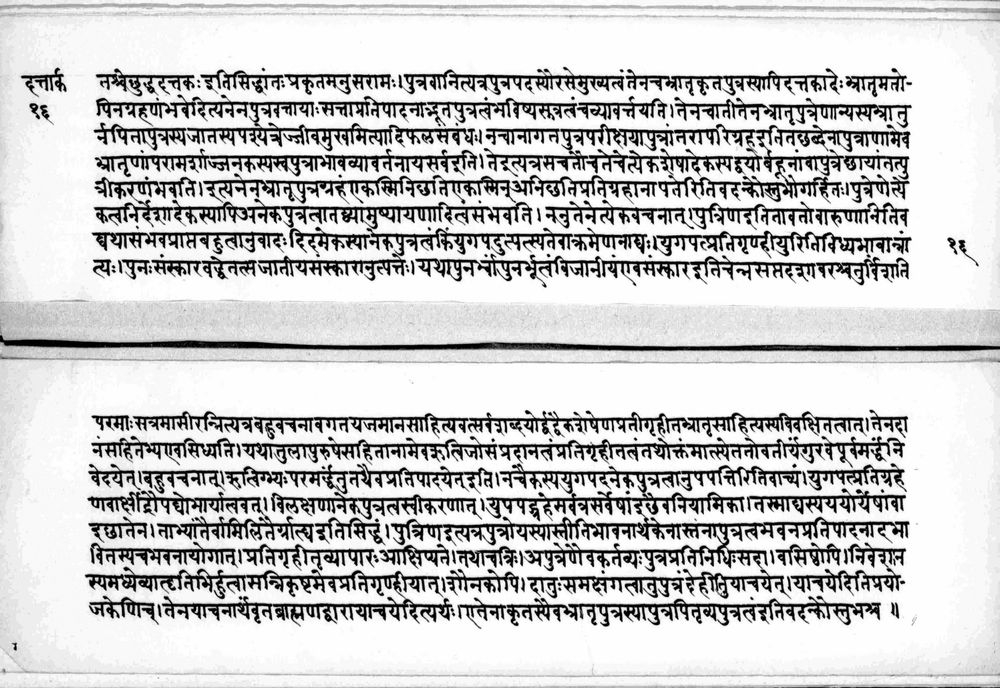 दत्तार्क
१६
नश्चेछुद्धदत्तकः इतिसिद्धांतः प्रकृतमनुसरामः।पुत्रवानित्यत्रपुत्रपदस्यौरसेमुख्यत्वंतेनचभ्रातृकृतपुत्रस्यापिदत्तकादेःभ्रातृमतो-
पिनग्रहणंभवेदित्यनेनपुत्रवत्तायाःसत्ताप्रतिपादनाद्भूतपुत्रत्वंभविष्यत्पुत्रत्वंचव्यावर्त्तयति।तेनचातीतेनभ्रातृपुत्रेणान्यस्यभ्रातु
र्नपितापुत्रस्यजातस्यपश्येच्चेज्जीवमुखमित्यादिफलसंबंधः।नचानागतपुत्रपरीक्षयापुत्रांतरापरिग्रहइतितछब्देनापुत्राणामेव
भ्रातृणांपरामर्शाज्जनकस्यस्वपुत्राभावव्यावर्तनायसर्वइति।तेइत्यत्रसचतौचतेचेत्येकशेषादेकस्यद्वयोर्बहूनांवापुत्रेछायांतत्पु
त्रीकरणंभवति।इत्यनेनभ्रातृपुत्रग्रहंएकस्मिनिछतिएकस्मिन्अनिछतिप्रतिग्रहानापतेरितिवदन्कौस्तुभोगर्हितः।पुत्रेणेत्ये
कत्वनिर्देशादेकस्यापिअनेकपुत्रत्वातद्व्यामुष्यायणादित्वसंभवति।ननुतेनेत्येकवचनात्।पुत्रिणइतितावतोवारुणानितिव
द्यथासंभवप्राप्तबहुत्वानुवादःइदिमेकस्यानेकपुत्रत्वंकिंयुगपदुत्पत्स्यतेवाक्रमेणनाद्यः।युगपत्प्रतिगृण्हीयुरितिविध्यभावान्नां
१६
त्यः।पुनःसंस्कारवद्धेतत्सजातीयसंस्कारानुत्पत्तेः।यथापुनर्भ्वांपुनर्भूत्वंविजानीयंएवसंस्कारइतिचेन्नसप्तदशावराश्चतुर्विंशति
परमाःसत्रमासीरन्नित्यत्रबहुवचनावगतयजमानसाहित्यवत्सर्वशब्दयोर्द्वंद्वैकशेषेणप्रतीगृहीतभ्रातृसाहित्यस्यविवक्षितत्वात्।तेनदा
नंसहितेभ्यएवसिध्यति।यथातुलापुरुषेसहितानामेवऋत्विजोसंप्रदानत्वंप्रतिगृहीतत्वंतथोक्तंमात्स्येततोवतीर्यगुरवेपूर्वमर्द्धंनि
वेदयेत्।बहुवचनात्।ऋत्विग्भ्यःपरमर्द्धंतुतथैवप्रतिपादयेत्इति।नचैकस्ययुगपदनेकपुत्रत्वानुपपत्तिरितिवाच्यं।युगपत्प्रतिग्रहे
णवाक्षीद्रौपद्योभार्यात्ववत्।विलक्षणानेकपुत्रत्वस्वीकरणात्।युपपद्ग्रहेमर्वत्रसर्वेषांइछैवनियामिका।नस्माद्यस्यययोर्येषांवा
इछातेन।ताभ्यांतैर्वामिलितैर्ग्राह्यइतिसिद्धं।पुत्रिणइत्यत्रपुत्रोयस्यास्तीतिभावनार्थकेनास्तनापुत्रत्वभवनप्रतिपादनाद्भा
वितस्यचभवनायोगात्।प्रतिगृहीतृव्यापारःआक्षिप्यते।तथाचत्रिः।अपुत्रेणैवकर्तव्यःपुत्रप्रतिनिधिःसदा।वसिष्ठोपि।निवेशन
स्यमध्येव्याहृतिभिर्हुत्वासन्निकृष्टमेवप्रतिगृण्हीयात्।शौनकोपि।दातुःसमक्षंगत्वातुपुत्रंदेहीतियाचयेत्।याचयेदितिप्रयो-
जकेणिच्।तेनयाचनार्थंवृतब्राह्मणद्वारायाचयेदित्यर्थः।एतेनाकृतस्यैवभ्रातृपुत्रस्यापुत्रपितृव्यपुत्रत्वंइतिवदन्कौस्तुभश्च॥